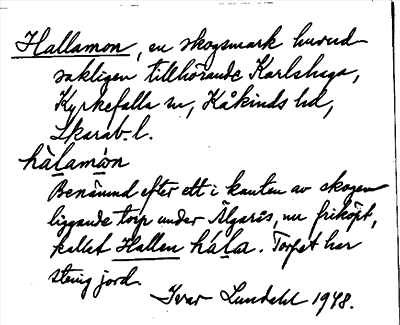 Hallamon, en skogsmark huvud-
sakligen tillhörande Karlshaga,
Kyrkefalla sn, Kåkinds hd,
Skarab. l.
hàlamòn
Benämnd efter ett i kanten av skogen
liggande torp under Älgarås, nu friköpt,
kallat Hallen hàla. Torpet har
stenig jord.
Ivar Lundahl 1948.